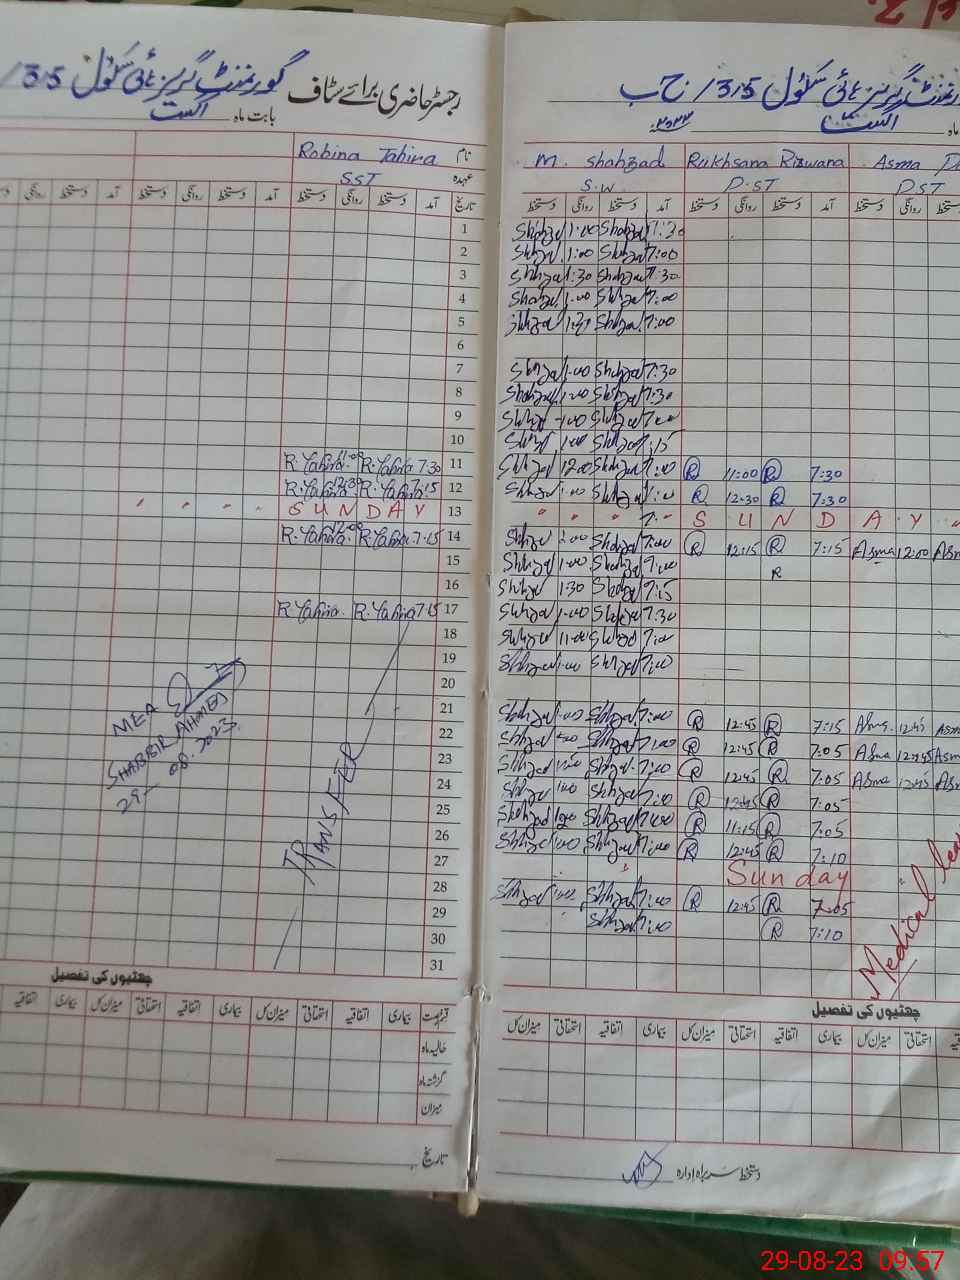 رجسٹر حاضری برائے سٹاف گورنمنٹ گرلز ہائی سکول 315/
بابت ماہ اگست
نام Robina Tahira
عہدہ SST
تاریخ آمد دستخط روانگی دستخط آمد دستخط روانگی دستخط
1
2
3
4
5
6
7
8
9
10
11 7:30 R.Tahira 11:00 R.Tahira
12 7:15 R.Tahira 12:30 R.Tahira
13 SUNDAY
14 7:15 R.Tahira 12:00 R.Tahira
15
16
17 7:15 R.Tahira R.Tahira
18
19
20
21
22
23
24
25
26
27
28
29
30
31
TRANSFER
MEA
SHABBIR AHMED
29-08-2023
چھٹیوں کی تفصیل
قسم رخصت بیماری اتفاقیہ استحقاقی میزان کل بیماری اتفاقیہ استحقاقی میزان کل بیماری اتفاقیہ
حالیہ ماہ
گزشتہ ماہ
میزان
تاریخ
گورنمنٹ گرلز ہائی سکول 315/ ج ب
ماہ اگست ۲۰۲۳
M. Shahzad Rukhsana Rizwana Asma
S.W D.ST D.ST
دستخط روانگی دستخط آمد دستخط روانگی دستخط آمد دستخط روانگی دستخط
Shahzad 1:00 Shahzad 7:30
Shahzad 1:00 Shahzad 7:00
Shahzad 1:30 Shahzad 7:30
Shahzad 1:00 Shahzad 7:00
Shahzad 1:30 Shahzad 7:00
Shahzad 1:00 Shahzad 7:30
Shahzad 1:00 Shahzad 7:30
Shahzad 1:00 Shahzad 7:00
Shahzad 1:00 Shahzad 7:15
Shahzad 12:00 Shahzad 7:00 R 11:00 R 7:30
Shahzad 1:00 Shahzad 7:00 R 12:30 R 7:30
SUNDAY
Shahzad 2:00 Shahzad 7:00 R 12:15 R 7:15 Asma 12:00 Asm
Shahzad 1:00 Shahzad 7:00 R
Shahzad 1:30 Shahzad 7:15
Shahzad 1:00 Shahzad 7:30
Shahzad 11:00 Shahzad 7:00
Shahzad 1:00 Shahzad 7:00
Shahzad 1:00 Shahzad 7:00 R 12:45 R 7:15 Asma 12:45 Asm
Shahzad 1:00 Shahzad 7:00 R 12:45 R 7:05 Asma 12:45 Asm
Shahzad 1:00 Shahzad 7:00 R 12:45 R 7:05 Asma 12:45 Asm
Shahzad 1:00 Shahzad 7:00 R 12:45 R 7:05
Shahzad Shahzad 7:00 R 11:15 R 7:05
Shahzad 1:00 Shahzad 7:00 R 12:45 R 7:10
Sunday
Shahzad 1:00 Shahzad 7:00 R 12:45 R 7:05
Shahzad 7:00 R 7:10
Medical lea
چھٹیوں کی تفصیل
میزان کل استحقاقی اتفاقیہ بیماری میزان کل استحقاقی اتفاقیہ بیماری میزان کل استحقاقی
دستخط سربراہ ادارہ
29-08-23 09:57